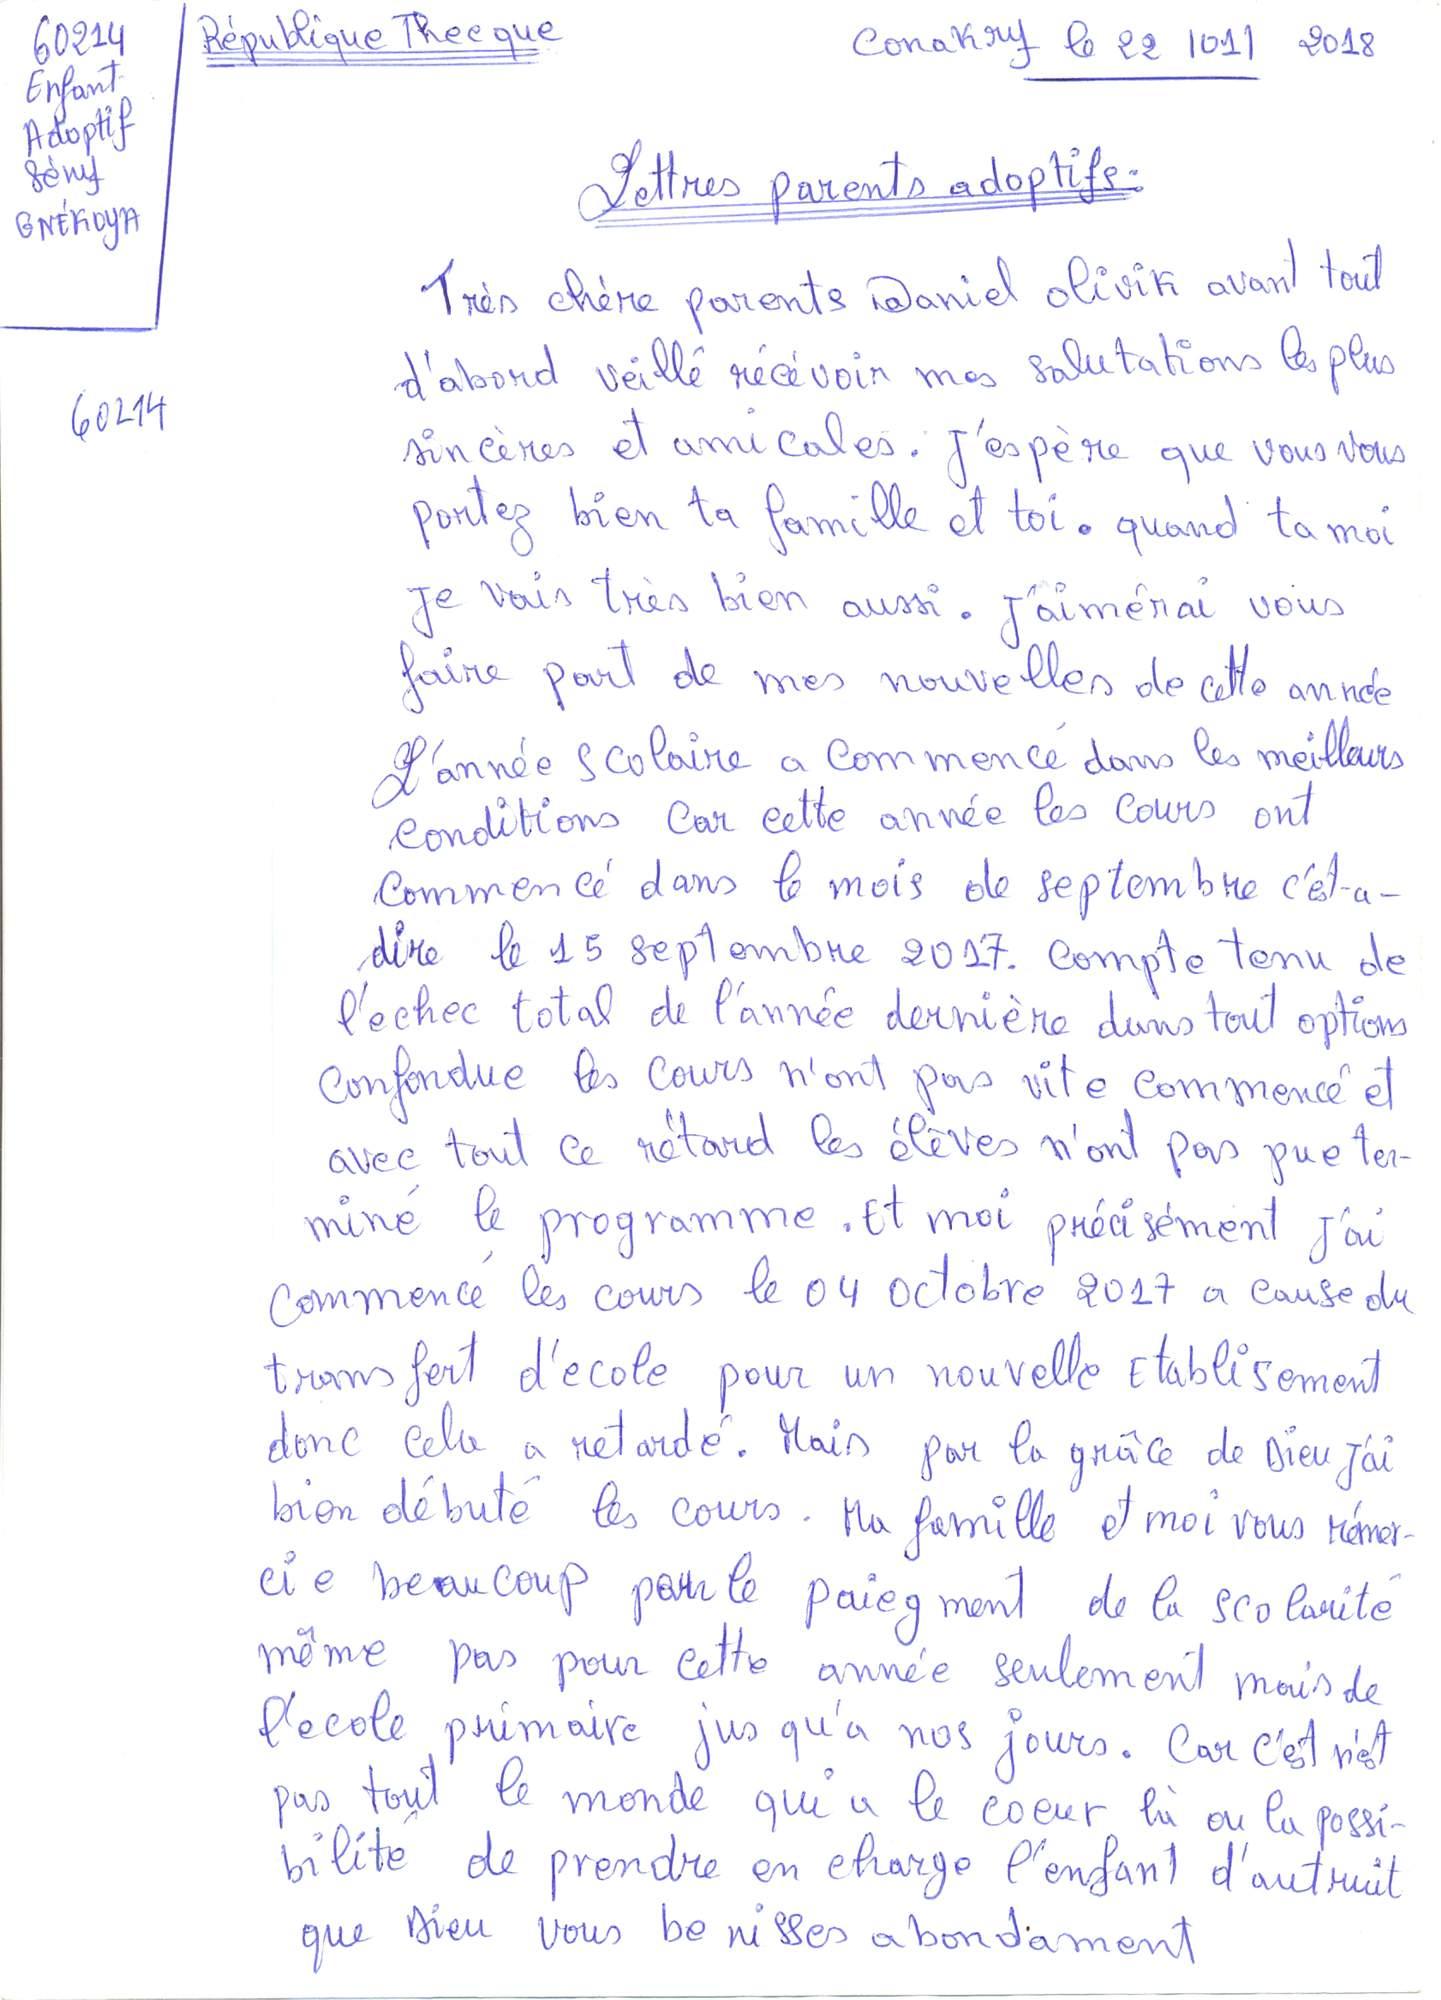 60214
Enfant
Adoptif
Sény
GNÉKOYA
60214
République Theeque
Conakry le 22 /01/ 2018
Lettres parents adoptifs:
Très chère parents Daniel olivik avant tout
d'abord veillé récévoir mes salutations les plus
sincères et amicales. J'espère que vous vous
portez bien ta famille et toi. quand ta moi
je vais très bien aussi. J'aimérai vous
faire part de mes nouvelles de cette année
L'année scolaire a commencé dans les meilleurs
conditions car cette année les cours ont
commencé dans le mois de septembre c'ést-a-
dire le 15 septembre 2017. compte tenu de
l'echec total de l'année dernière dans tout options
confondue les cours n'ont pas vite commencé et
avec tout ce rétard les élèves n'ont pas pue ter-
miné le programme. Et moi précisément j'ai
commencé les cours le 04 octobre 2017 a cause du
transfert d'ecole pour un nouvelle Etablisement
donc cela a retardé. Mais par la grâce de Dieu j'ai
bien débuté les cours. Ma famille et moi vous rémer-
cie beaucoup pour le paiegment de la scolarité
même pas pour cette année seulement mais de
l'ecole primaire jusqu'a nos jours. Car c'est n'est
pas tout le monde qui a le coeur là ou la possi-
bilité de prendre en charge l'enfant d'autruit
que Dieu vous benisses abondament